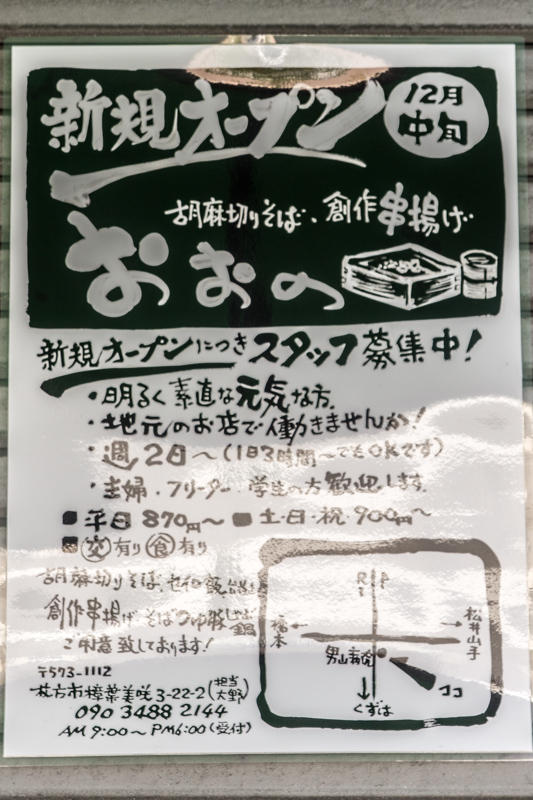 新規オープン
12月
中旬
胡麻切りそば、創作串揚げ
おおの
新規オープンにつきスタッフ募集中!
・明るく素直な元気な方。
・地元のお店で働きませんか!
・週2日〜(1日3時間〜でもOKです)
・主婦・フリーター・学生の方歓迎します。
■平日870円〜 ■土・日・祝・900円〜
■交有り食有り
胡麻切りそば、セイロ飯
創作串揚げ・そばつゆ豚しゃぶ鍋
ご用意致しております!
〒573-1112
枚方市樟葉美咲3-22-2(担当大野)
090 3488 2144
AM9:00〜PM6:00(受付)
松井山手
男山病院
ココ
くずは